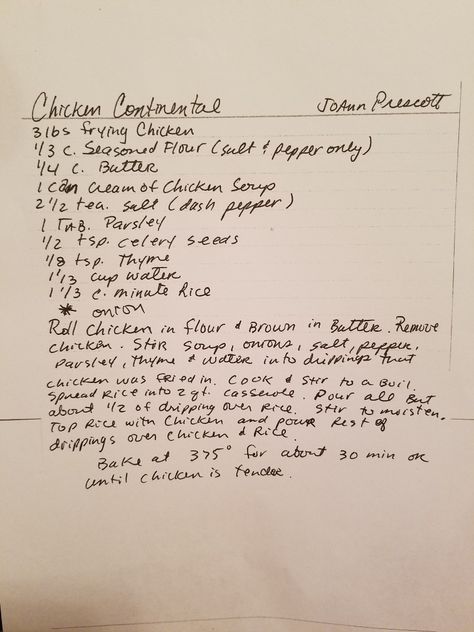 Chicken Continental JoAnn Prescott
3 lbs frying Chicken
1/3 c. Seasoned Flour (salt & pepper only)
1/4 c. Butter
1 can Cream of Chicken Soup
2 1/2 tea. salt (dash pepper)
1 TAB. Parsley
1/2 tsp. celery seeds
1/8 tsp. Thyme
1 1/3 cup water
1 1/3 c. minute Rice
* onion
Roll Chicken in flour & Brown in Butter. Remove
chicken. Stir soup, onions, salt, pepper,
parsley, thyme & water into drippings that
chicken was fried in. Cook & stir to a Boil.
Spread Rice into 2 qt. casserole. Pour all But
about 1/2 of dripping over Rice. Stir to moisten.
Top Rice with Chicken and pour Rest of
drippings over Chicken & Rice.
Bake at 375° for about 30 min or
until chicken is tender.